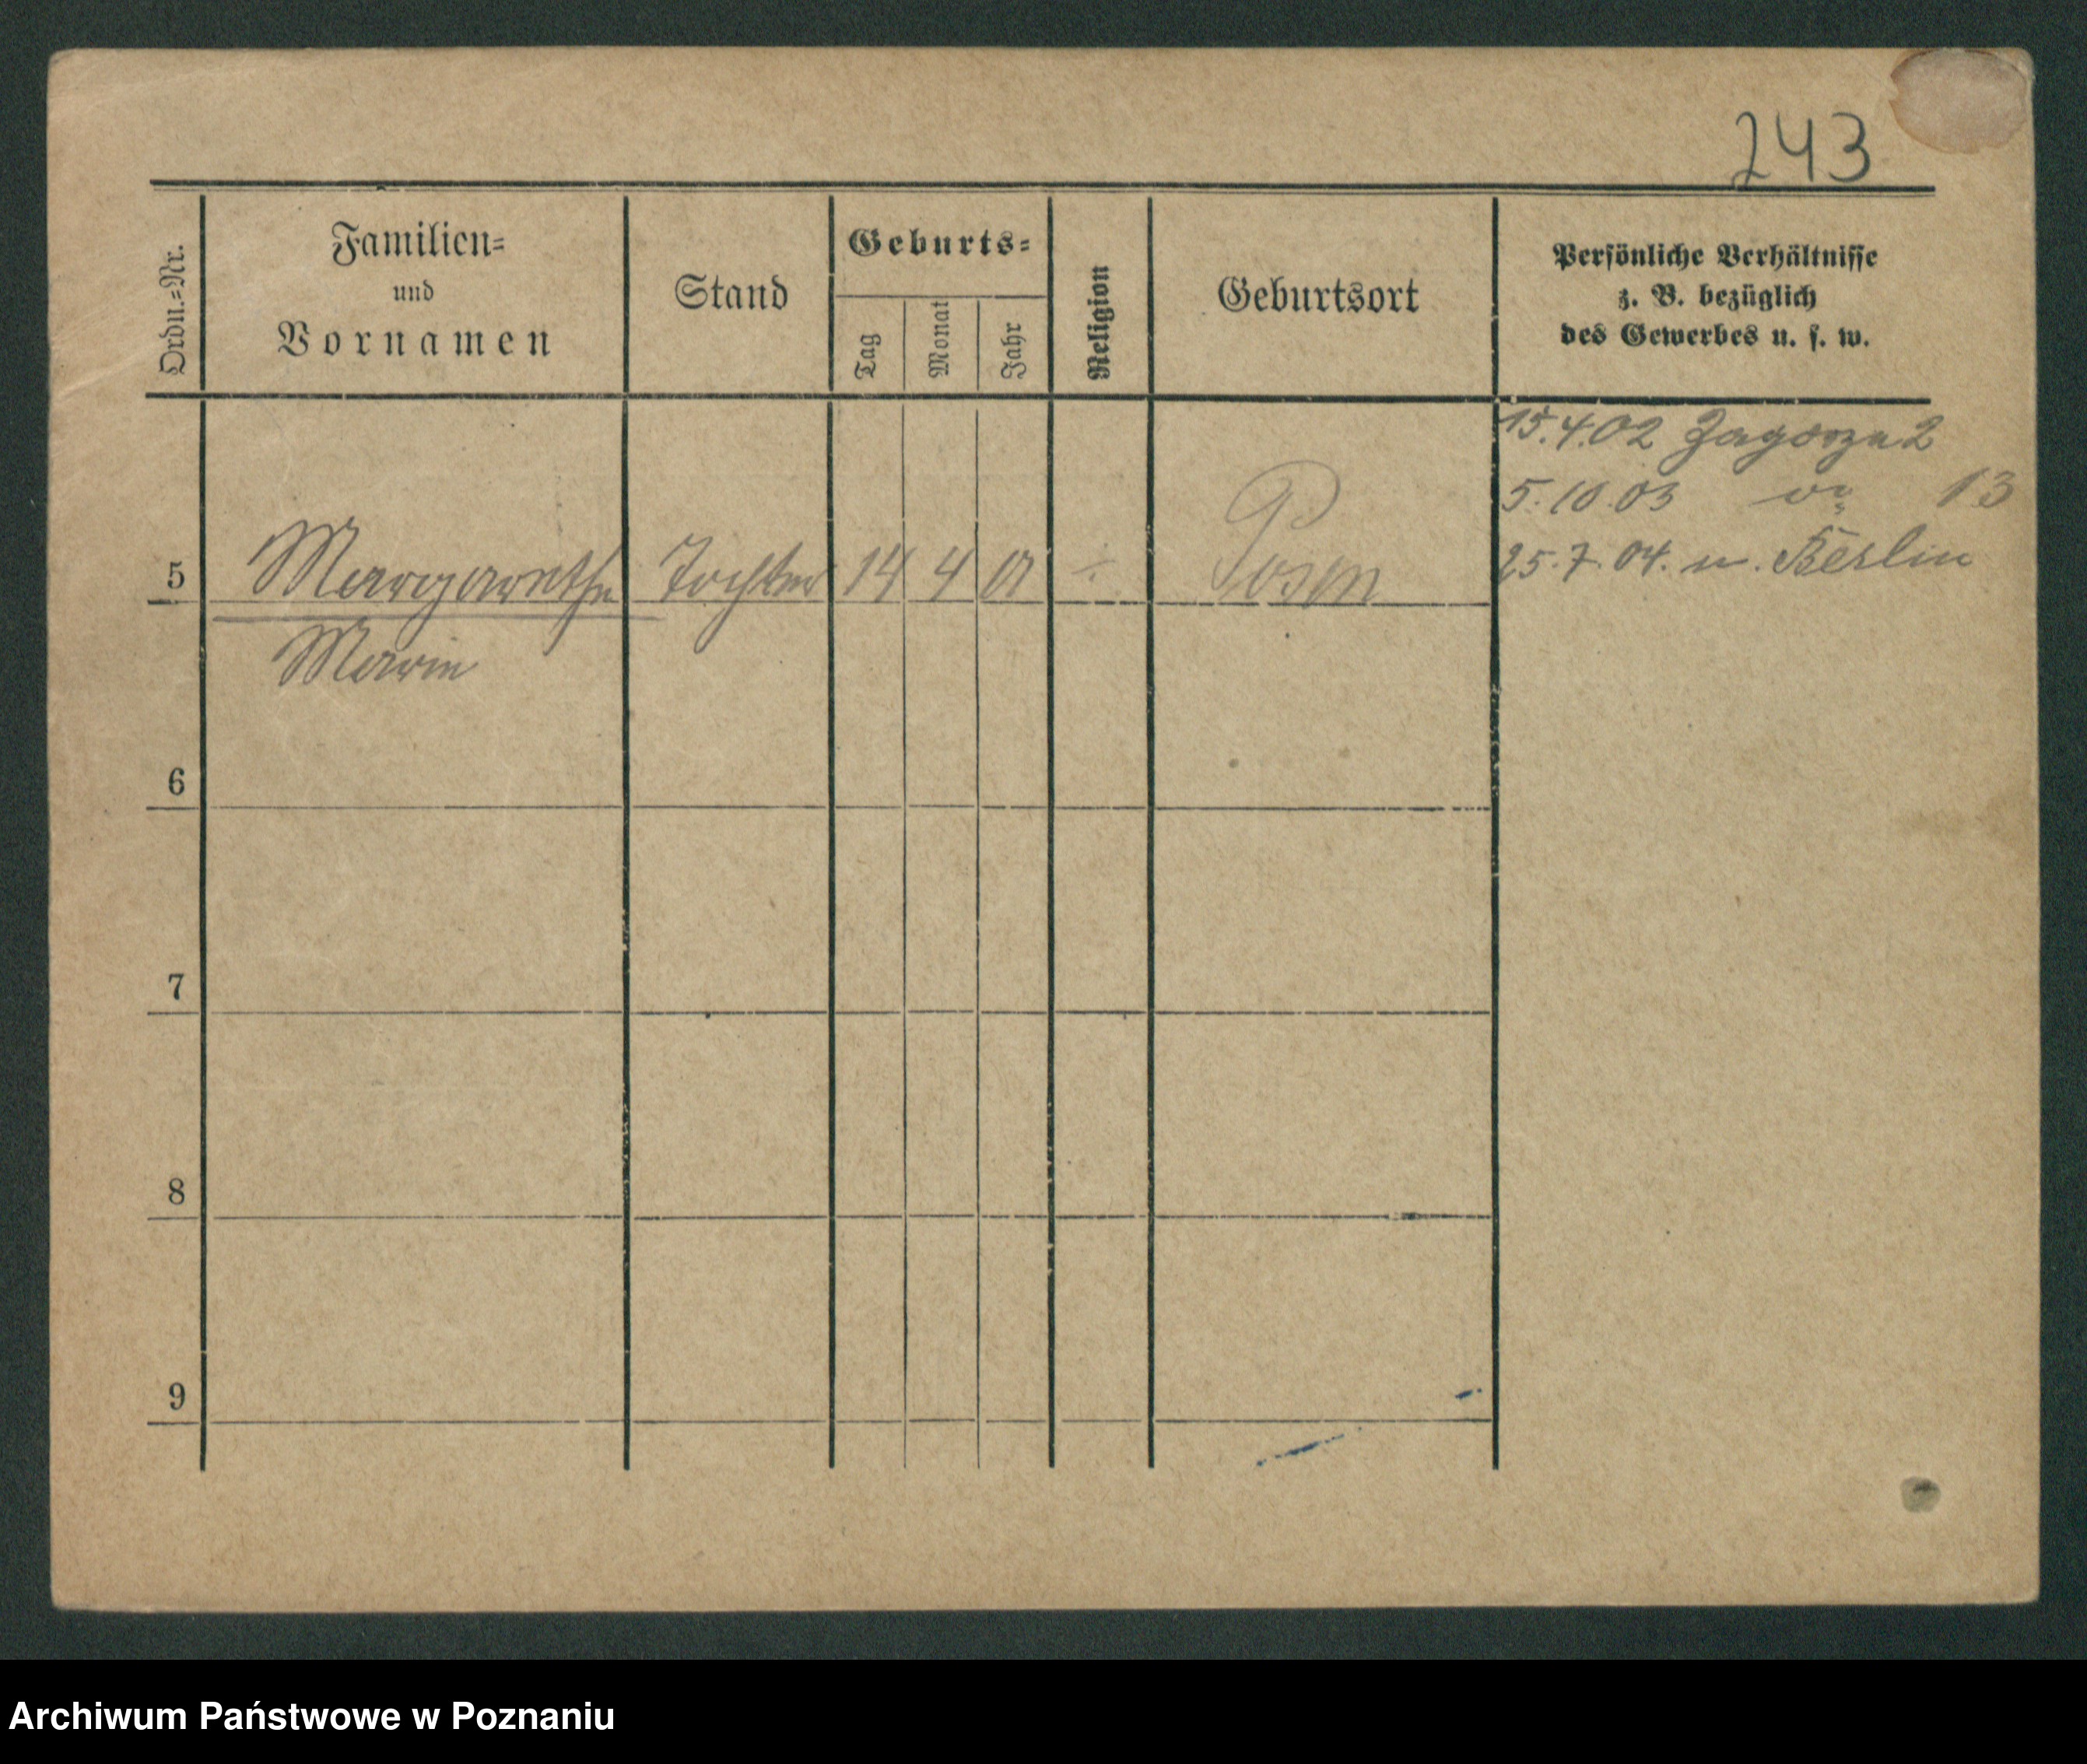 243
Ordn.=Nr.
Familien=
und
Vornamen
Stand
Geburts=
Tag
Monat
Jahr
Religion
Geburtsort
Persönliche Verhältnisse
z. B. bezüglich
des Gewerbes u. s. w.
15.4.02 Zagorze 2
5.10.03 13
5 Margarethe Tochter 14 4 01 ÷ Posen
25.7.04. n. Berlin
Marie
6
7
8
9
Archiwum Państwowe w Poznaniu